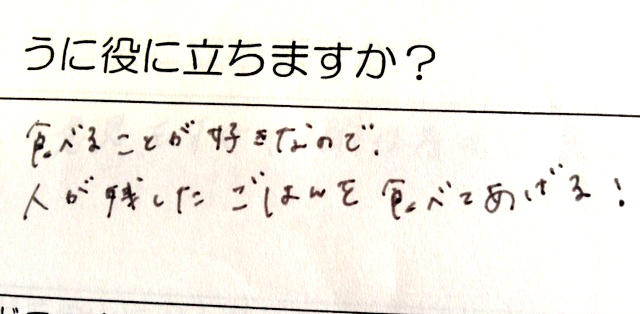 うに役に立ちますか？
食べることが好きなので、
人が残したごはんを食べてあげる！